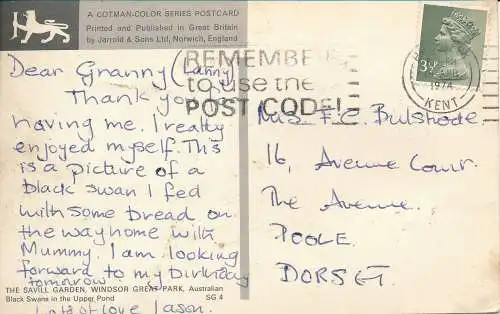 A COTMAN-COLOR SERIES POSTCARD
Printed and Published in Great Britain
by Jarrold & Sons Ltd, Norwich, England
Dear Granny (Lanny)
Thank you
having me. I really
enjoyed myself. This
is a picture of a
black swan I fed
with some bread on
the way home with
Mummy. I am looking
forward to my birthday
tomorrow.
Lots of love Jason.
THE SAVILL GARDEN, WINDSOR GREAT PARK, Australian
Black Swans in the Upper Pond
SG 4
REMEMBER
to use the
POST CODE!
1974
KENT
3½P
Mrs F.C. Bulstrode
16, Avenue Court.
The Avenue.
POOLE.
DORSET.